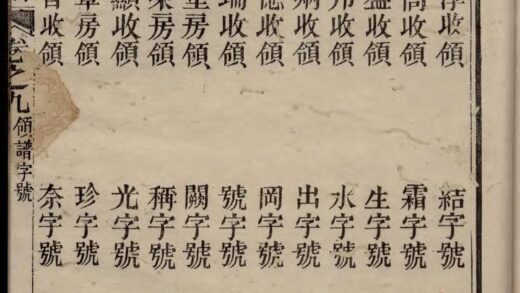 收領 結字號
收領 霜字號
收領 生字號
收領 水字號
炳收領 出字號
收領 岡字號
瑞收領 號字號
房領 闕字號
房領 稱字號
顯收領 光字號
房領 珍字號
收領 奈字號
卷之九 領譜字號